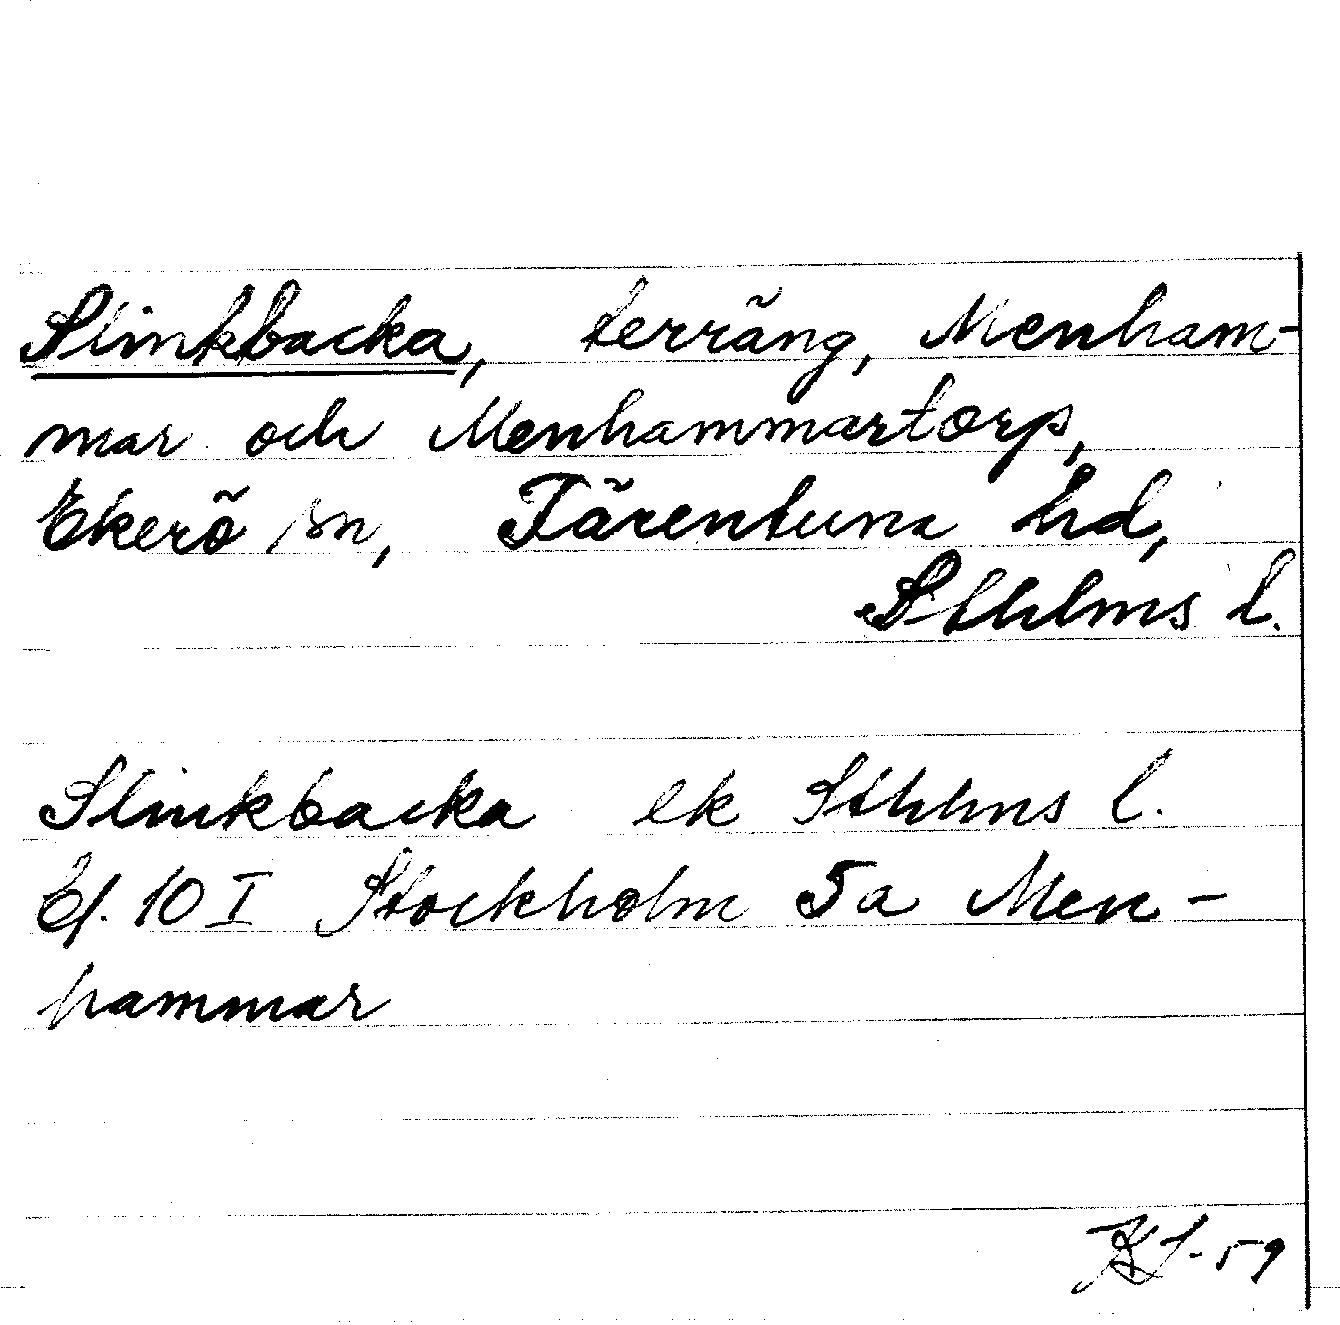 Slinkbacka, terräng, Menham-
mar och Menhammartorp,
Ekerö sn, Färentuna hd,
Sthlms l.
Slinkbacka ek Sthlms l.
Ef. 10 I Stockholm 5a Men-
hammar
-59